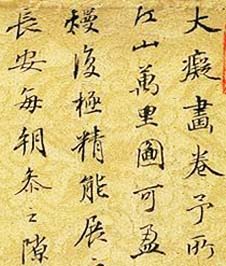 大癡畫卷予所
江山萬里圖可盈
熳復極精能展之
長安每朝參之隙